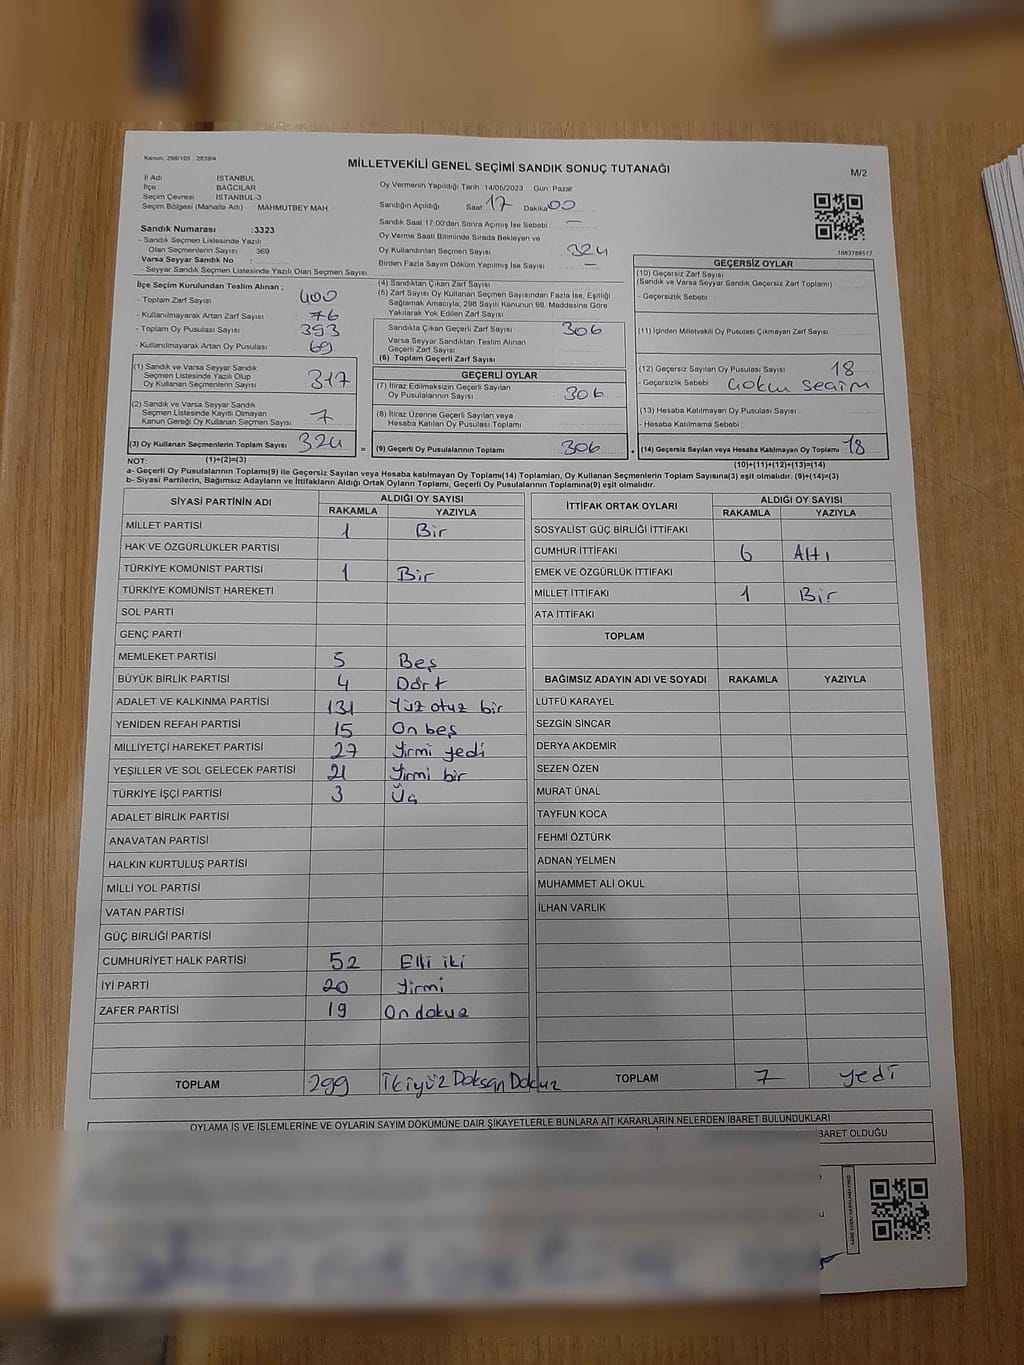 Kanun: 298/105 . 2839/4
MİLLETVEKİLİ GENEL SEÇİMİ SANDIK SONUÇ TUTANAĞI
M/2
İl Adı İSTANBUL
İlçe BAĞCILAR
Seçim Çevresi İSTANBUL-3
Seçim Bölgesi (Mahalle Adı) MAHMUTBEY MAH.
Sandık Numarası :3323
- Sandık Seçmen Listesinde Yazılı
Olan Seçmenlerin Sayısı 369
Varsa Seyyar Sandık No :
- Seyyar Sandık Seçmen Listesinde Yazılı Olan Seçmen Sayısı
Oy Vermenin Yapıldığı Tarih :14/05/2023 Gün: Pazar
Sandığın Açıldığı Saat: 17 Dakika 00
Sandık Saat 17:00'den Sonra Açımış İse Sebebi : -
Oy Verme Saati Bitiminde Sırada Bekleyen ve
Oy Kullandırılan Seçmen Sayısı 324
Birden Fazla Sayım Döküm Yapılmış İse Sayısı -
1083788517
İlçe Seçim Kurulundan Teslim Alınan :
- Toplam Zarf Sayısı 400
- Kullanılmayarak Artan Zarf Sayısı : 76
- Toplam Oy Pusulası Sayısı 393
- Kullanılmayarak Artan Oy Pusulası 69
(1) Sandık ve Varsa Seyyar Sandık
Seçmen Listesinde Yazılı Olup
Oy Kullanan Seçmenlerin Sayısı 317
(2) Sandık ve Varsa Seyyar Sandık
Seçmen Listesinde Kayıtlı Olmayan
Kanun Gereği Oy Kullanan Seçmen Sayısı 7
(3) Oy Kullanan Seçmenlerin Toplam Sayısı 324
(4) Sandıktan Çıkan Zarf Sayısı
(5) Zarf Sayısı Oy Kullanan Seçmen Sayısından Fazla İse, Eşitliği
Sağlamak Amacıyla, 298 Sayılı Kanunun 98. Maddesine Göre
Yakılarak Yok Edilen Zarf Sayısı
Sandıkta Çıkan Geçerli Zarf Sayısı 306
Varsa Seyyar Sandıktan Teslim Alınan
Geçerli Zarf Sayısı
(6) Toplam Geçerli Zarf Sayısı
GEÇERLİ OYLAR
(7) İtiraz Edilmeksizin Geçerli Sayılan
Oy Pusulalarının Sayısı 306
(8) İtiraz Üzerine Geçerli Sayılan veya
Hesaba Katılan Oy Pusulası Toplamı
= (9) Geçerli Oy Pusulalarının Toplamı 306
GEÇERSİZ OYLAR
(10) Geçersiz Zarf Sayısı
(Sandık ve Varsa Seyyar Sandık Geçersiz Zarf Toplamı)
- Geçersizlik Sebebi :
(11) İçinden Milletvekili Oy Pusulası Çıkmayan Zarf Sayısı
(12) Geçersiz Sayılan Oy Pusulası Sayısı 18
- Geçersizlik Sebebi seçim
(13) Hesaba Katılmayan Oy Pusulası Sayısı
- Hesaba Katılmama Sebebi :
+ (14) Geçersiz Sayılan veya Hesaba Katılmayan Oy Toplamı 18
NOT: (1)+(2)=(3) (10)+(11)+(12)+(13)=(14)
a- Geçerli Oy Pusulalarının Toplamı(9) ile Geçersiz Sayılan veya Hesaba katılmayan Oy Toplamı(14) Toplamları, Oy Kullanan Seçmenlerin Toplam Sayısına(3) eşit olmalıdır. (9)+(14)=(3)
b- Siyasi Partilerin, Bağımsız Adayların ve İttifakların Aldığı Ortak Oyların Toplamı, Geçerli Oy Pusulalarının Toplamına(9) eşit olmalıdır.
SİYASİ PARTİNİN ADI ALDIĞI OY SAYISI
RAKAMLA YAZIYLA
MİLLET PARTİSİ 1 Bir
HAK VE ÖZGÜRLÜKLER PARTİSİ
TÜRKİYE KOMÜNİST PARTİSİ 1 Bir
TÜRKİYE KOMÜNİST HAREKETİ
SOL PARTİ
GENÇ PARTİ
MEMLEKET PARTİSİ 5 Beş
BÜYÜK BİRLİK PARTİSİ 4 Dört
ADALET VE KALKINMA PARTİSİ 131 Yüz otuz bir
YENİDEN REFAH PARTİSİ 15 On beş
MİLLİYETÇİ HAREKET PARTİSİ 27 Yirmi yedi
YEŞİLLER VE SOL GELECEK PARTİSİ 21 Yirmi bir
TÜRKİYE İŞÇİ PARTİSİ 3 Üç
ADALET BİRLİK PARTİSİ
ANAVATAN PARTİSİ
HALKIN KURTULUŞ PARTİSİ
MİLLİ YOL PARTİSİ
VATAN PARTİSİ
GÜÇ BİRLİĞİ PARTİSİ
CUMHURİYET HALK PARTİSİ 52 Elli iki
İYİ PARTİ 20 Yirmi
ZAFER PARTİSİ 19 On dokuz
TOPLAM 299 İkiyüz Doksan Dokuz
İTTİFAK ORTAK OYLARI ALDIĞI OY SAYISI
RAKAMLA YAZIYLA
SOSYALİST GÜÇ BİRLİĞİ İTTİFAKI
CUMHUR İTTİFAKI 6 Altı
EMEK VE ÖZGÜRLÜK İTTİFAKI
MİLLET İTTİFAKI 1 Bir
ATA İTTİFAKI
TOPLAM
BAĞIMSIZ ADAYIN ADI VE SOYADI RAKAMLA YAZIYLA
LÜTFÜ KARAYEL
SEZGİN SİNCAR
DERYA AKDEMİR
SEZEN ÖZEN
MURAT ÜNAL
TAYFUN KOCA
FEHMİ ÖZTÜRK
ADNAN YELMEN
MUHAMMET ALİ OKUL
İLHAN VARLIK
TOPLAM 7 yedi
OYLAMA İŞ VE İŞLEMLERİNE VE OYLARIN SAYIM DÖKÜMÜNE DAİR ŞİKAYETLERLE BUNLARA AİT KARARLARIN NELERDEN İBARET BULUNDUKLARI
BARET OLDUĞU